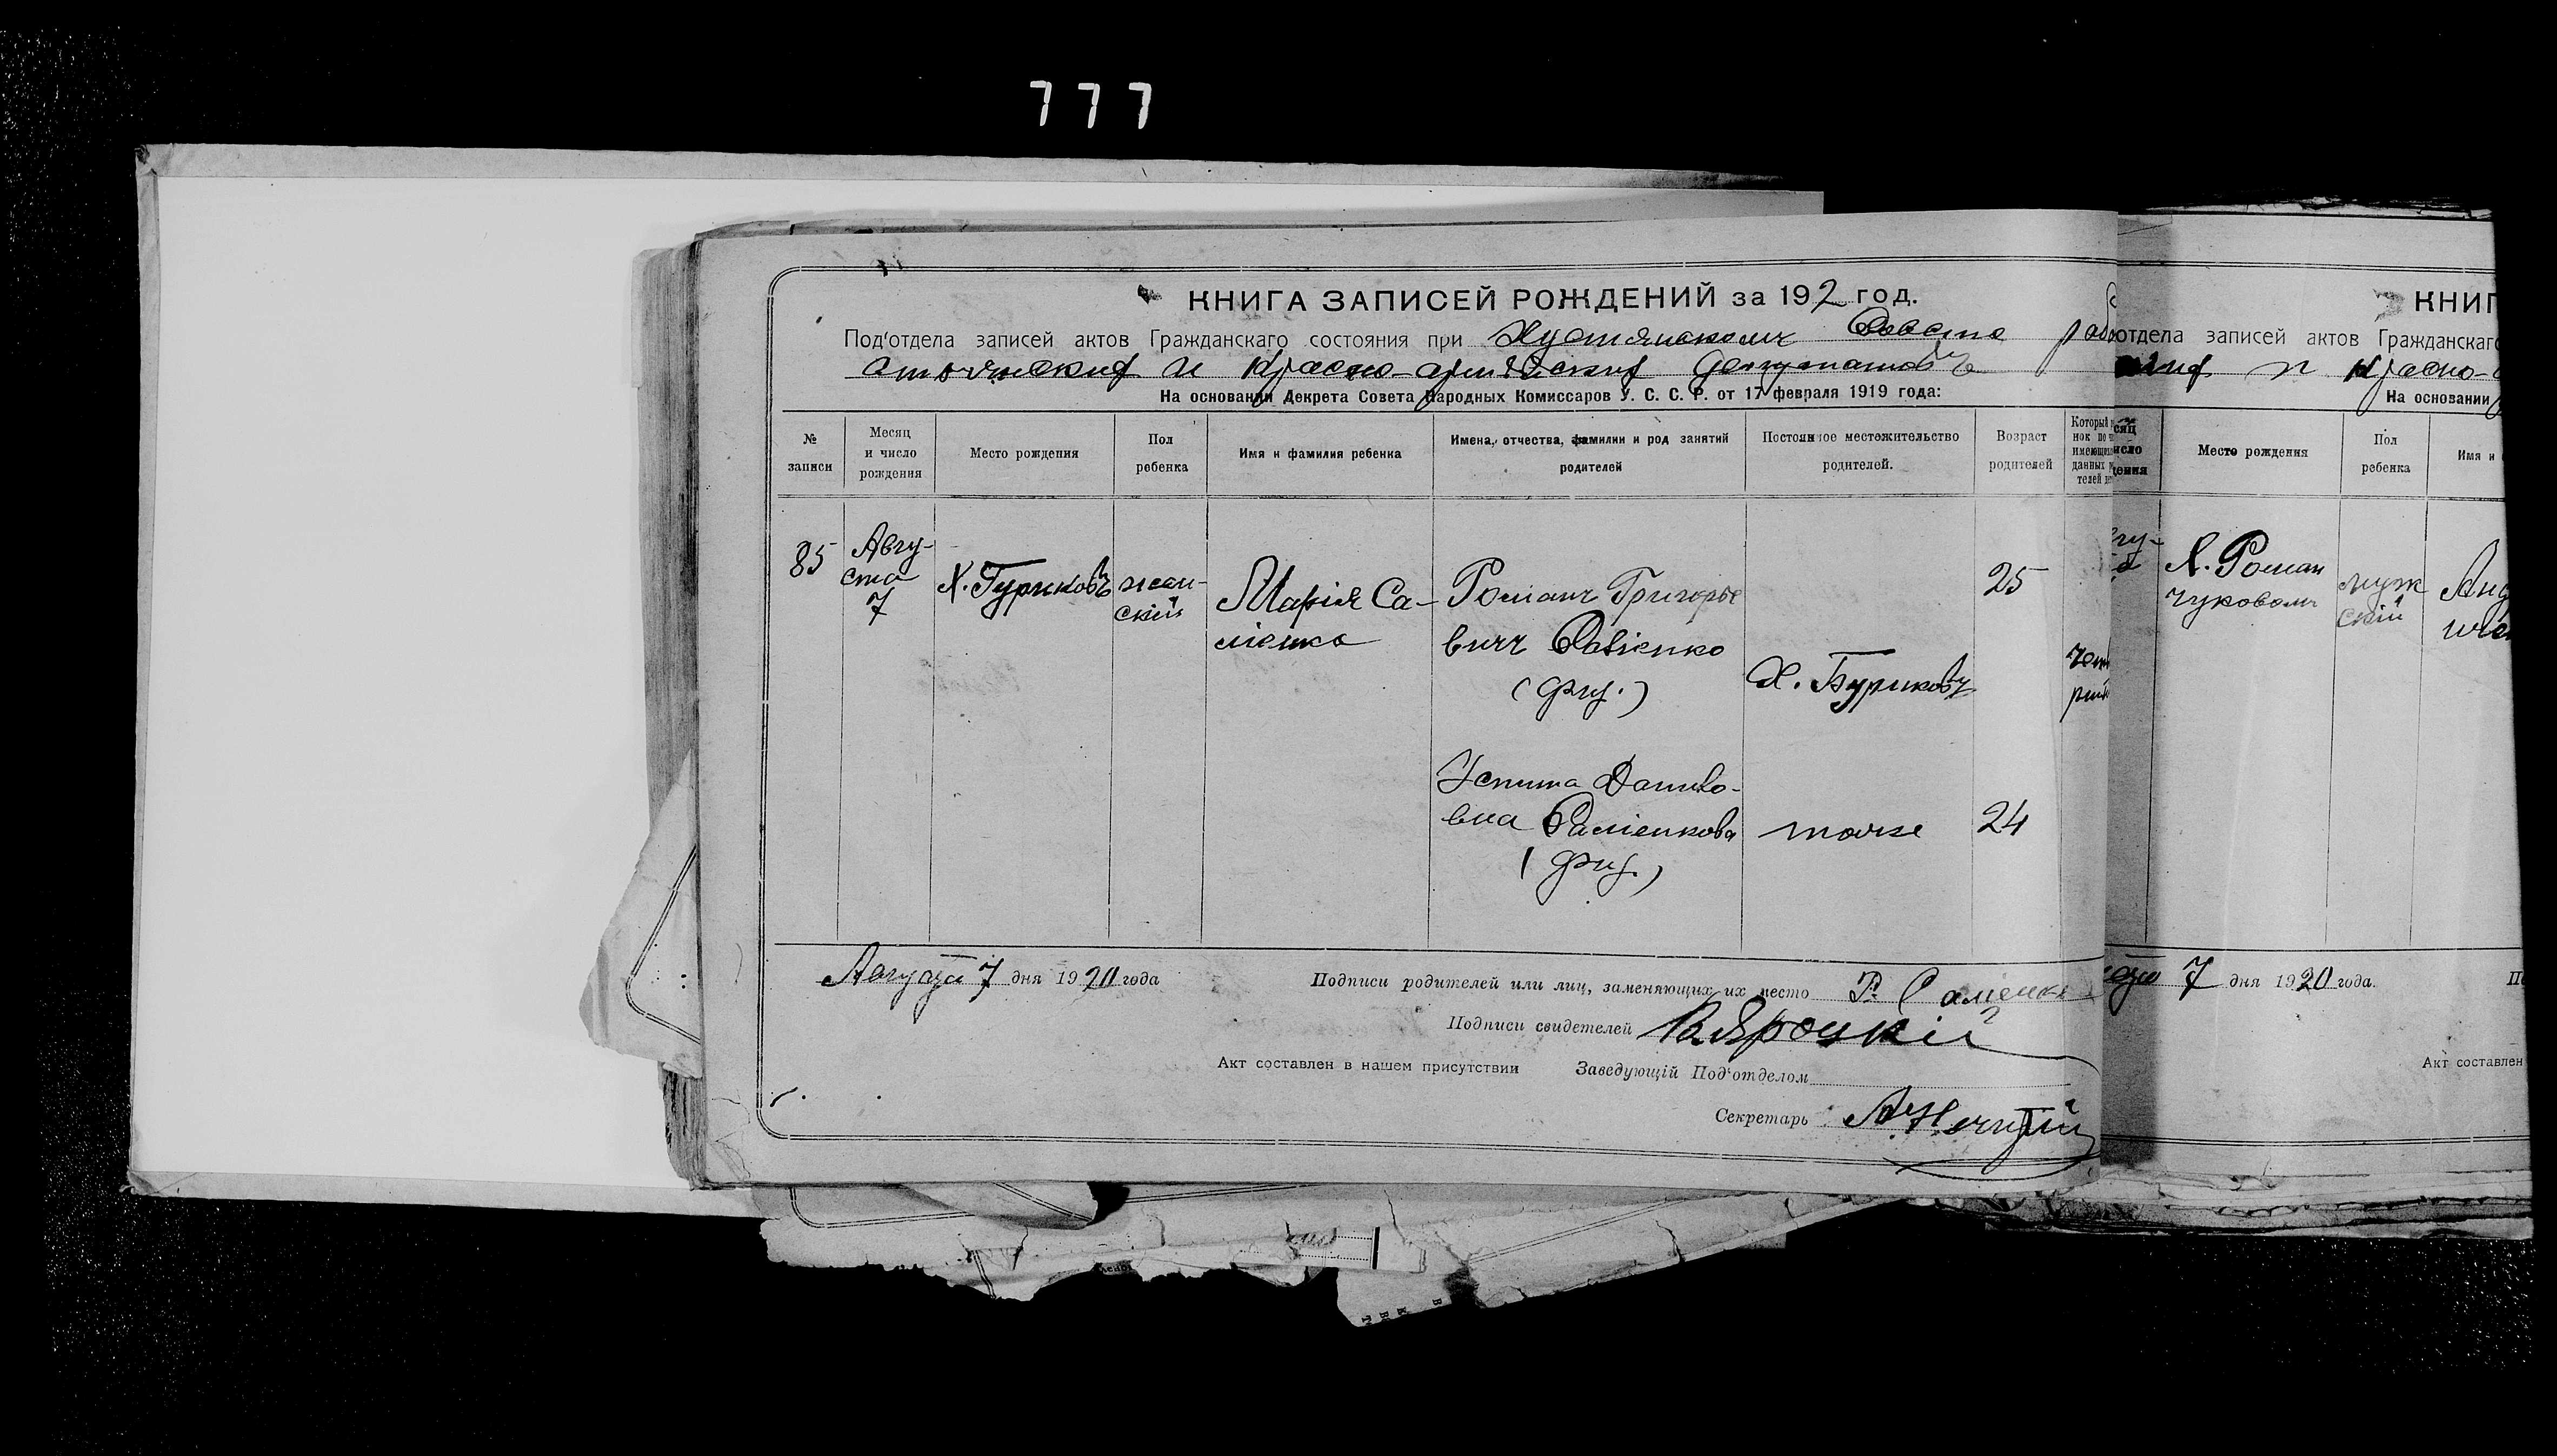 777
КНИГА ЗАПИСЕЙ РОЖДЕНИЙ за 192 год.
Под'отдела записей актов Гражданскаго состояния при Хустянскомъ Совѣте рабо
и Красно-армейских депутатовъ
На основании Декрета Совета Народных Комиссаров У. С. С. Р. от 17 февраля 1919 года:
№ записи
Месяц и число рождения
Место рождения
Пол ребенка
Имя и фамилия ребенка
Имена, отчества, фамилии и род занятий родителей
Постоянное местожительство родителей.
Возраст родителей
85
Авгу-
ста
7
Х. Гуриковъ
жен-
скій
Марія Са-
міенко
Романъ Григорье
вичъ Саміенко
Х. Буриковъ
25
Данило-
вна Саміенкова
тоже
24
Августа 7 дня 1920 года
Подписи родителей или лиц, заменяющих их место Р. Саменко
Подписи свидетелей В. Яроцкій
Акт составлен в нашем присутствии Заведующій Под'отделом
Секретарь
КНИГ
отдела записей актов Гражданскаго
и Красно-
На основании
Место рождения
Пол ребенка
Имя и
Х. Роман
чуковомъ
муж
скій
7 дня 1920 года.
Акт составлен